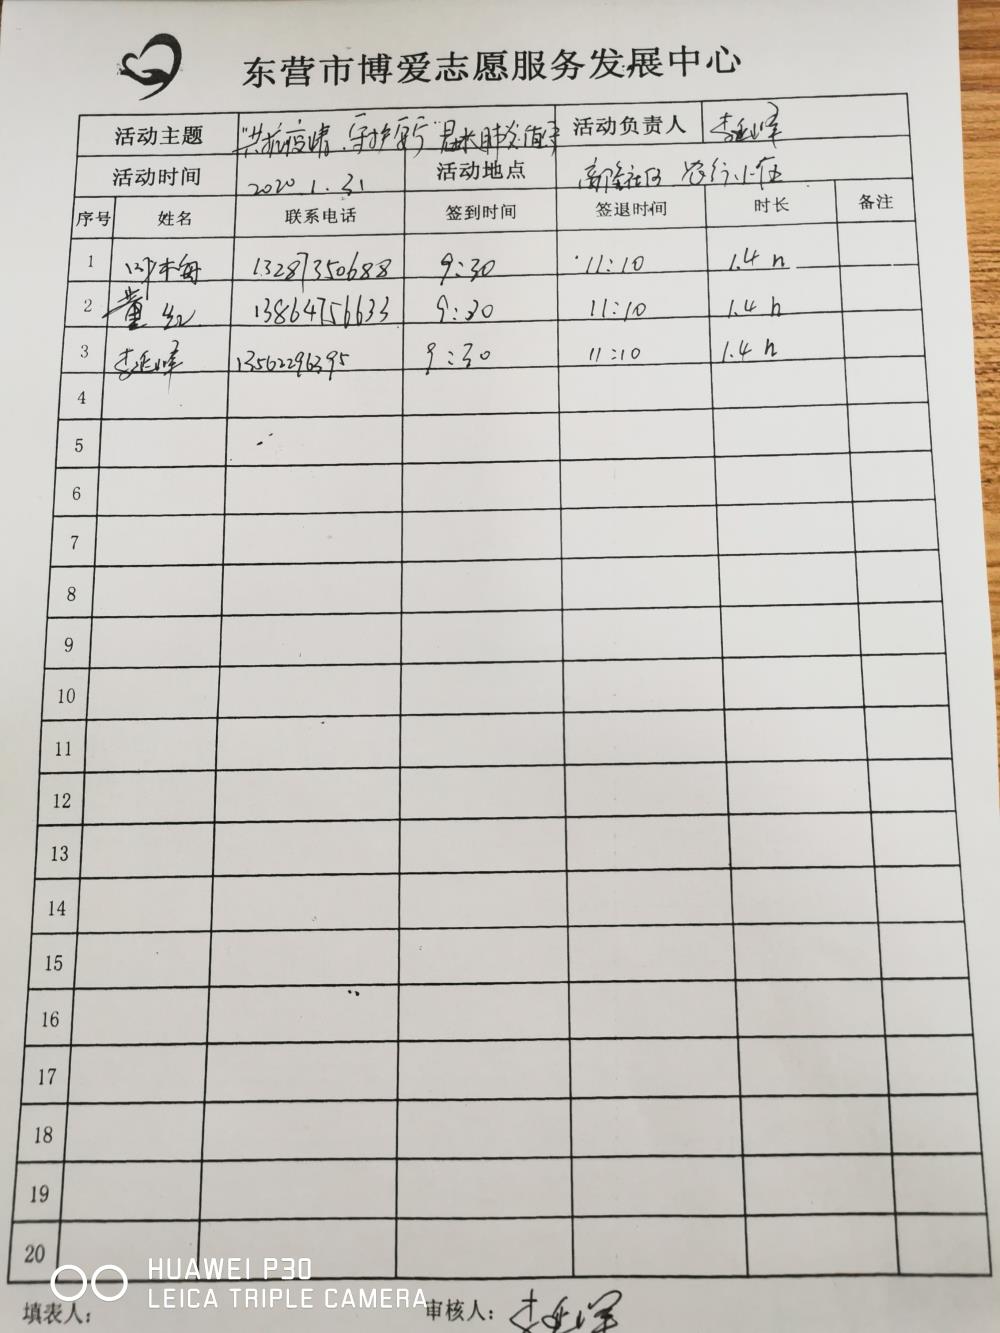 东营市博爱志愿服务发展中心
活动主题 "共抗疫情.守护 活动负责人 李延峰
活动时间 2020.1.31 活动地点 社区 农行小区
序号 姓名 联系电话 签到时间 签退时间 时长 备注
1 13287350688 9:30 11:10 1.4h
2 董红 13864756633 9:30 11:10 1.4h
3 李延峰 13562296395 9:30 11:10 1.4h
4
5
6
7
8
9
10
11
12
13
14
15
16
17
18
19
20
HUAWEI P30
LEICA TRIPLE CAMERA
填表人: 审核人: 李延峰